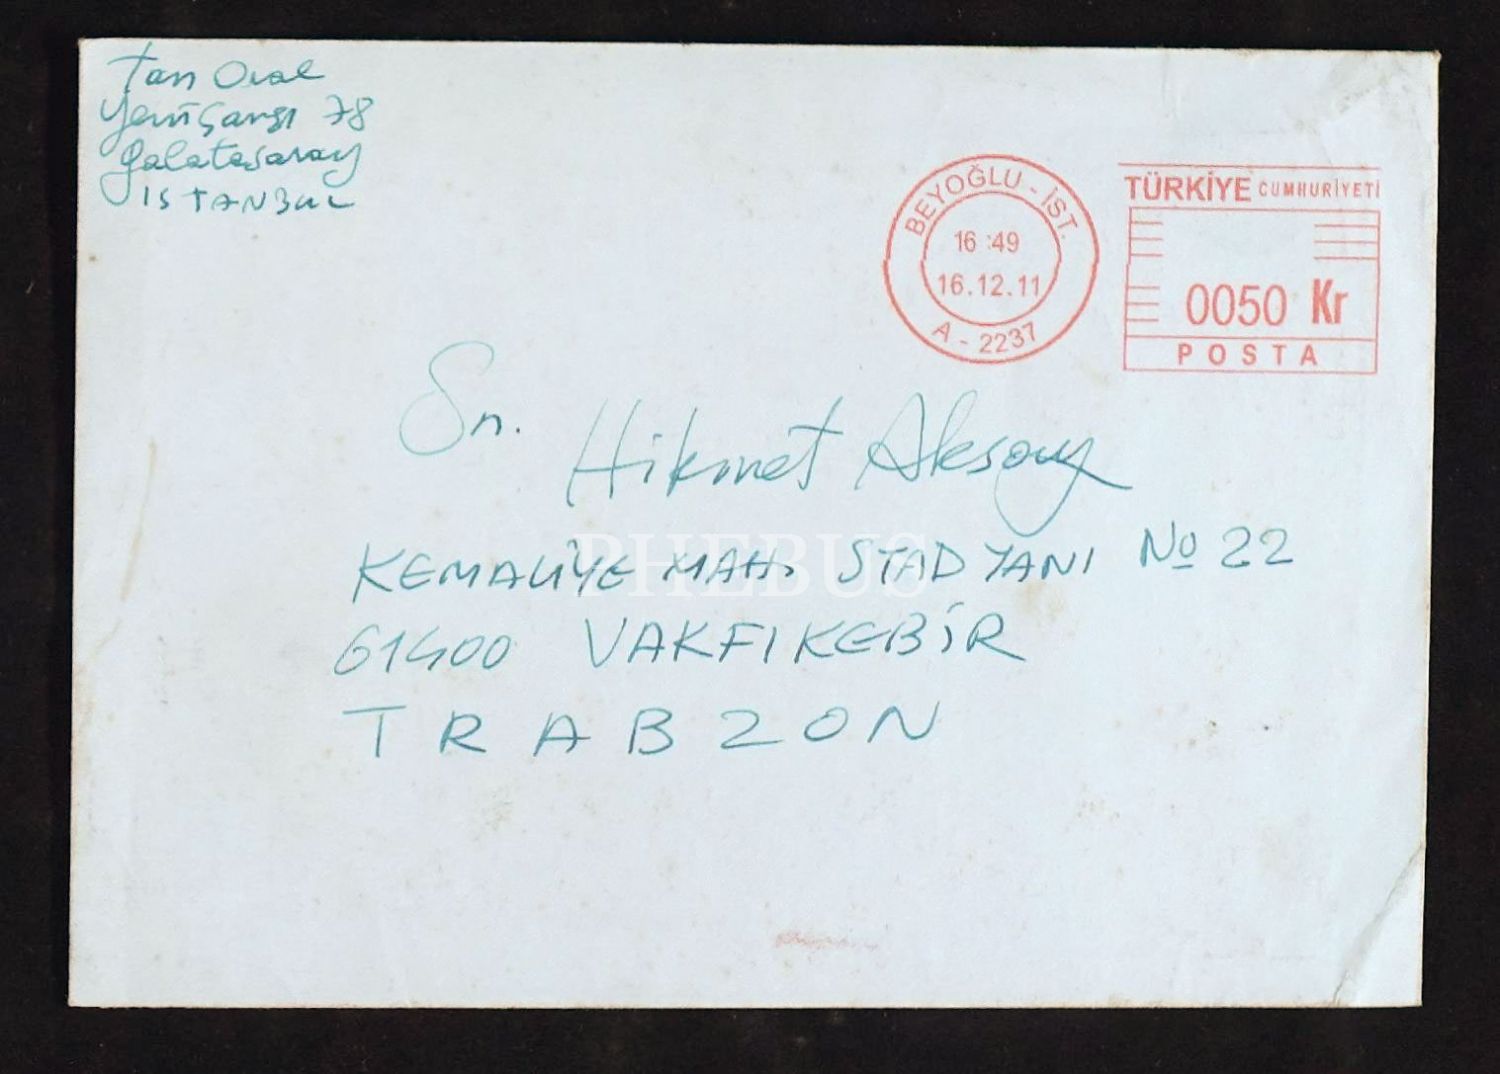 Tan Oral
Yeniçarşı 78
Galatasaray
ISTANBUL
BEYOĞLU - İST.
16:49
16.12.11
A - 2237
TÜRKİYE CUMHURİYETİ
0050 Kr
POSTA
Sn.
Hikmet Aksoy
KEMALİYE MAH. STAD YANI No 22
61400 VAKFIKEBİR
TRABZON
PHEBUS